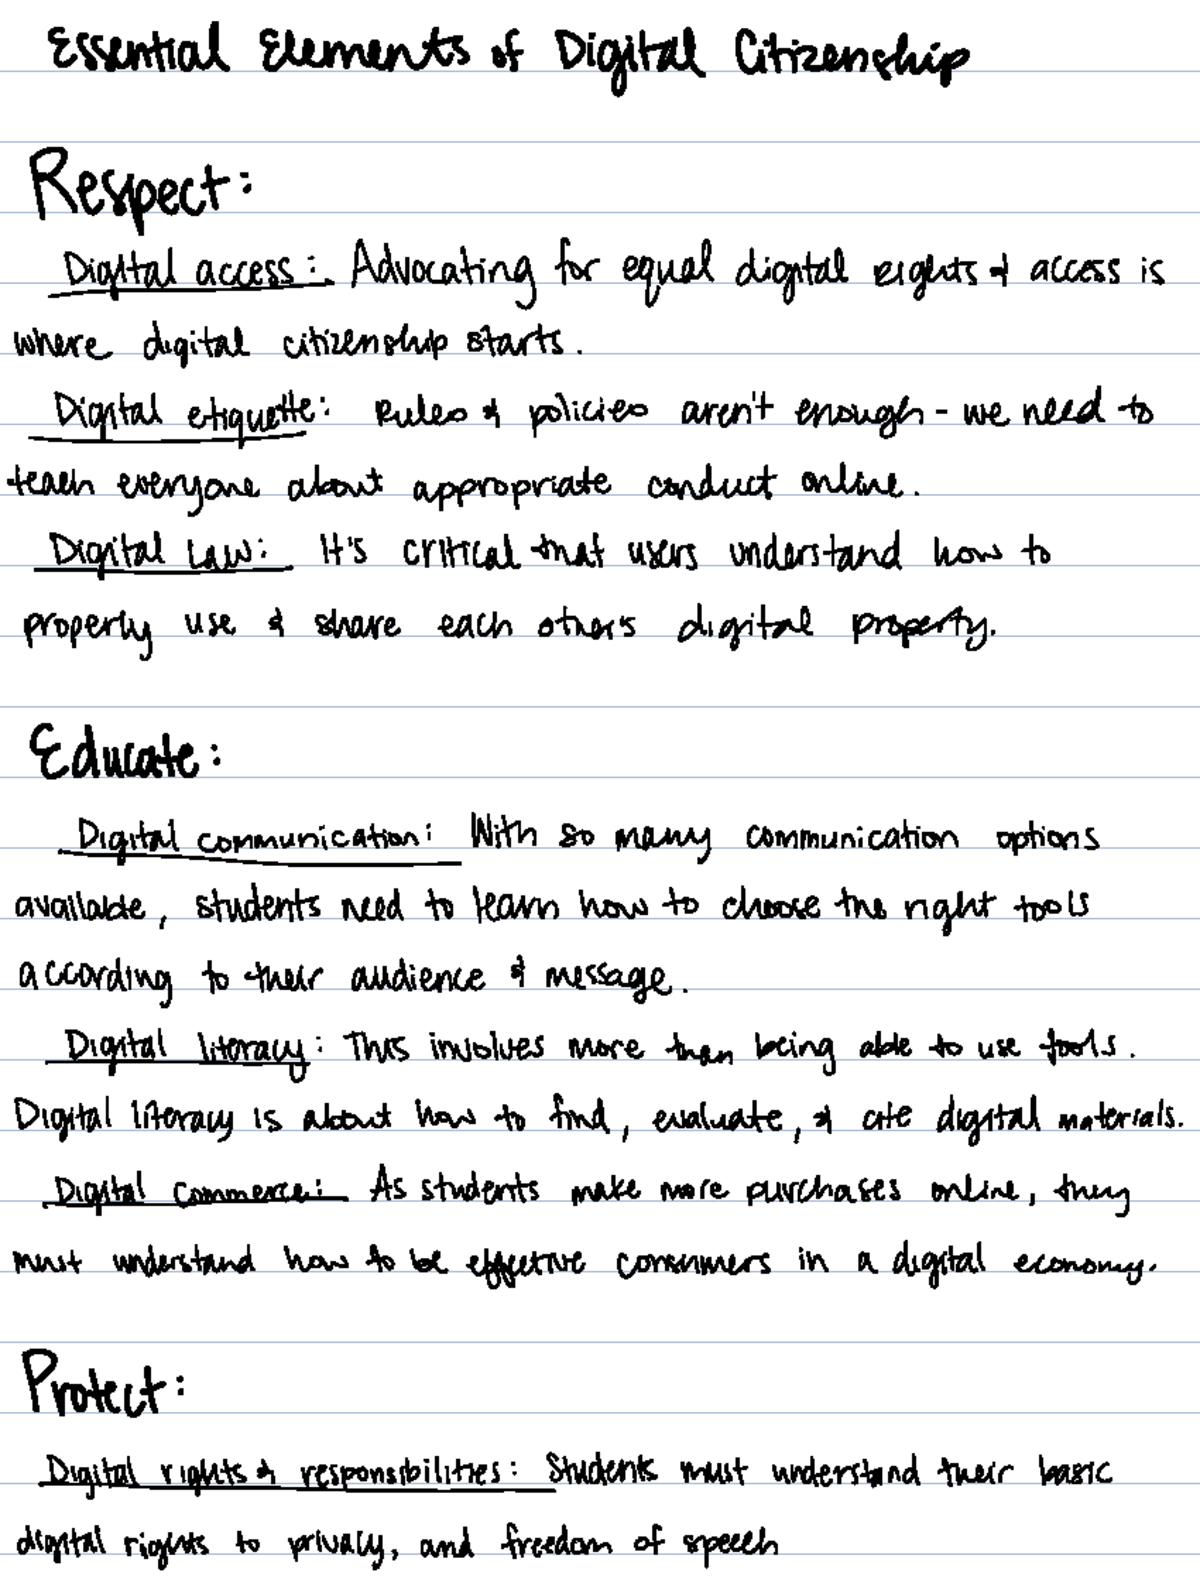 Essential Elements of Digital Citizenship
Respect:
Digital access: Advocating for equal digital rights & access is
where digital citizenship starts.
Digital etiquette: Rules & policies aren't enough - we need to
teach everyone about appropriate conduct online.
Digital Law: It's critical that users understand how to
properly use & share each other's digital property.
Educate:
Digital communication: With so many communication options
available, students need to learn how to choose the right tools
according to their audience & message.
Digital literacy: This involves more than being able to use tools.
Digital literacy is about how to find, evaluate, & cite digital materials.
Digital Commerce: As students make more purchases online, they
must understand how to be effective consumers in a digital economy.
Protect:
Digital rights & responsibilities: Students must understand their basic
digital rights to privacy, and freedom of speech